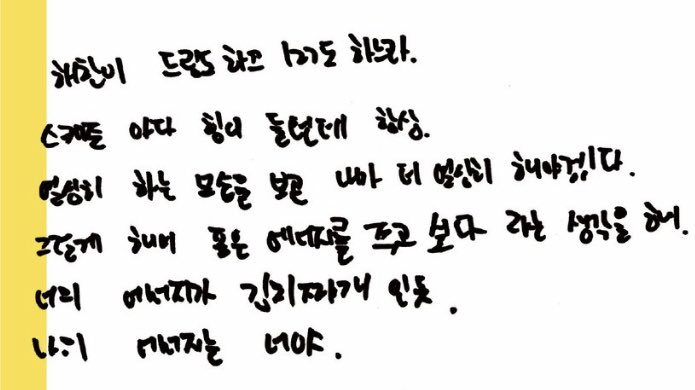 해찬이 드림도 하고 127도 하느라.
스케줄 마다 힘이 들텐데 항상.
열심히 하는 모습을 보고 나마 더 열심히 해야겠다.
그렇게 해서 좋은 에너지를 주고 보다 라는 생각을 해.
너의 에너지가 길리짜개 인듯.
나의 에너지는 너야.